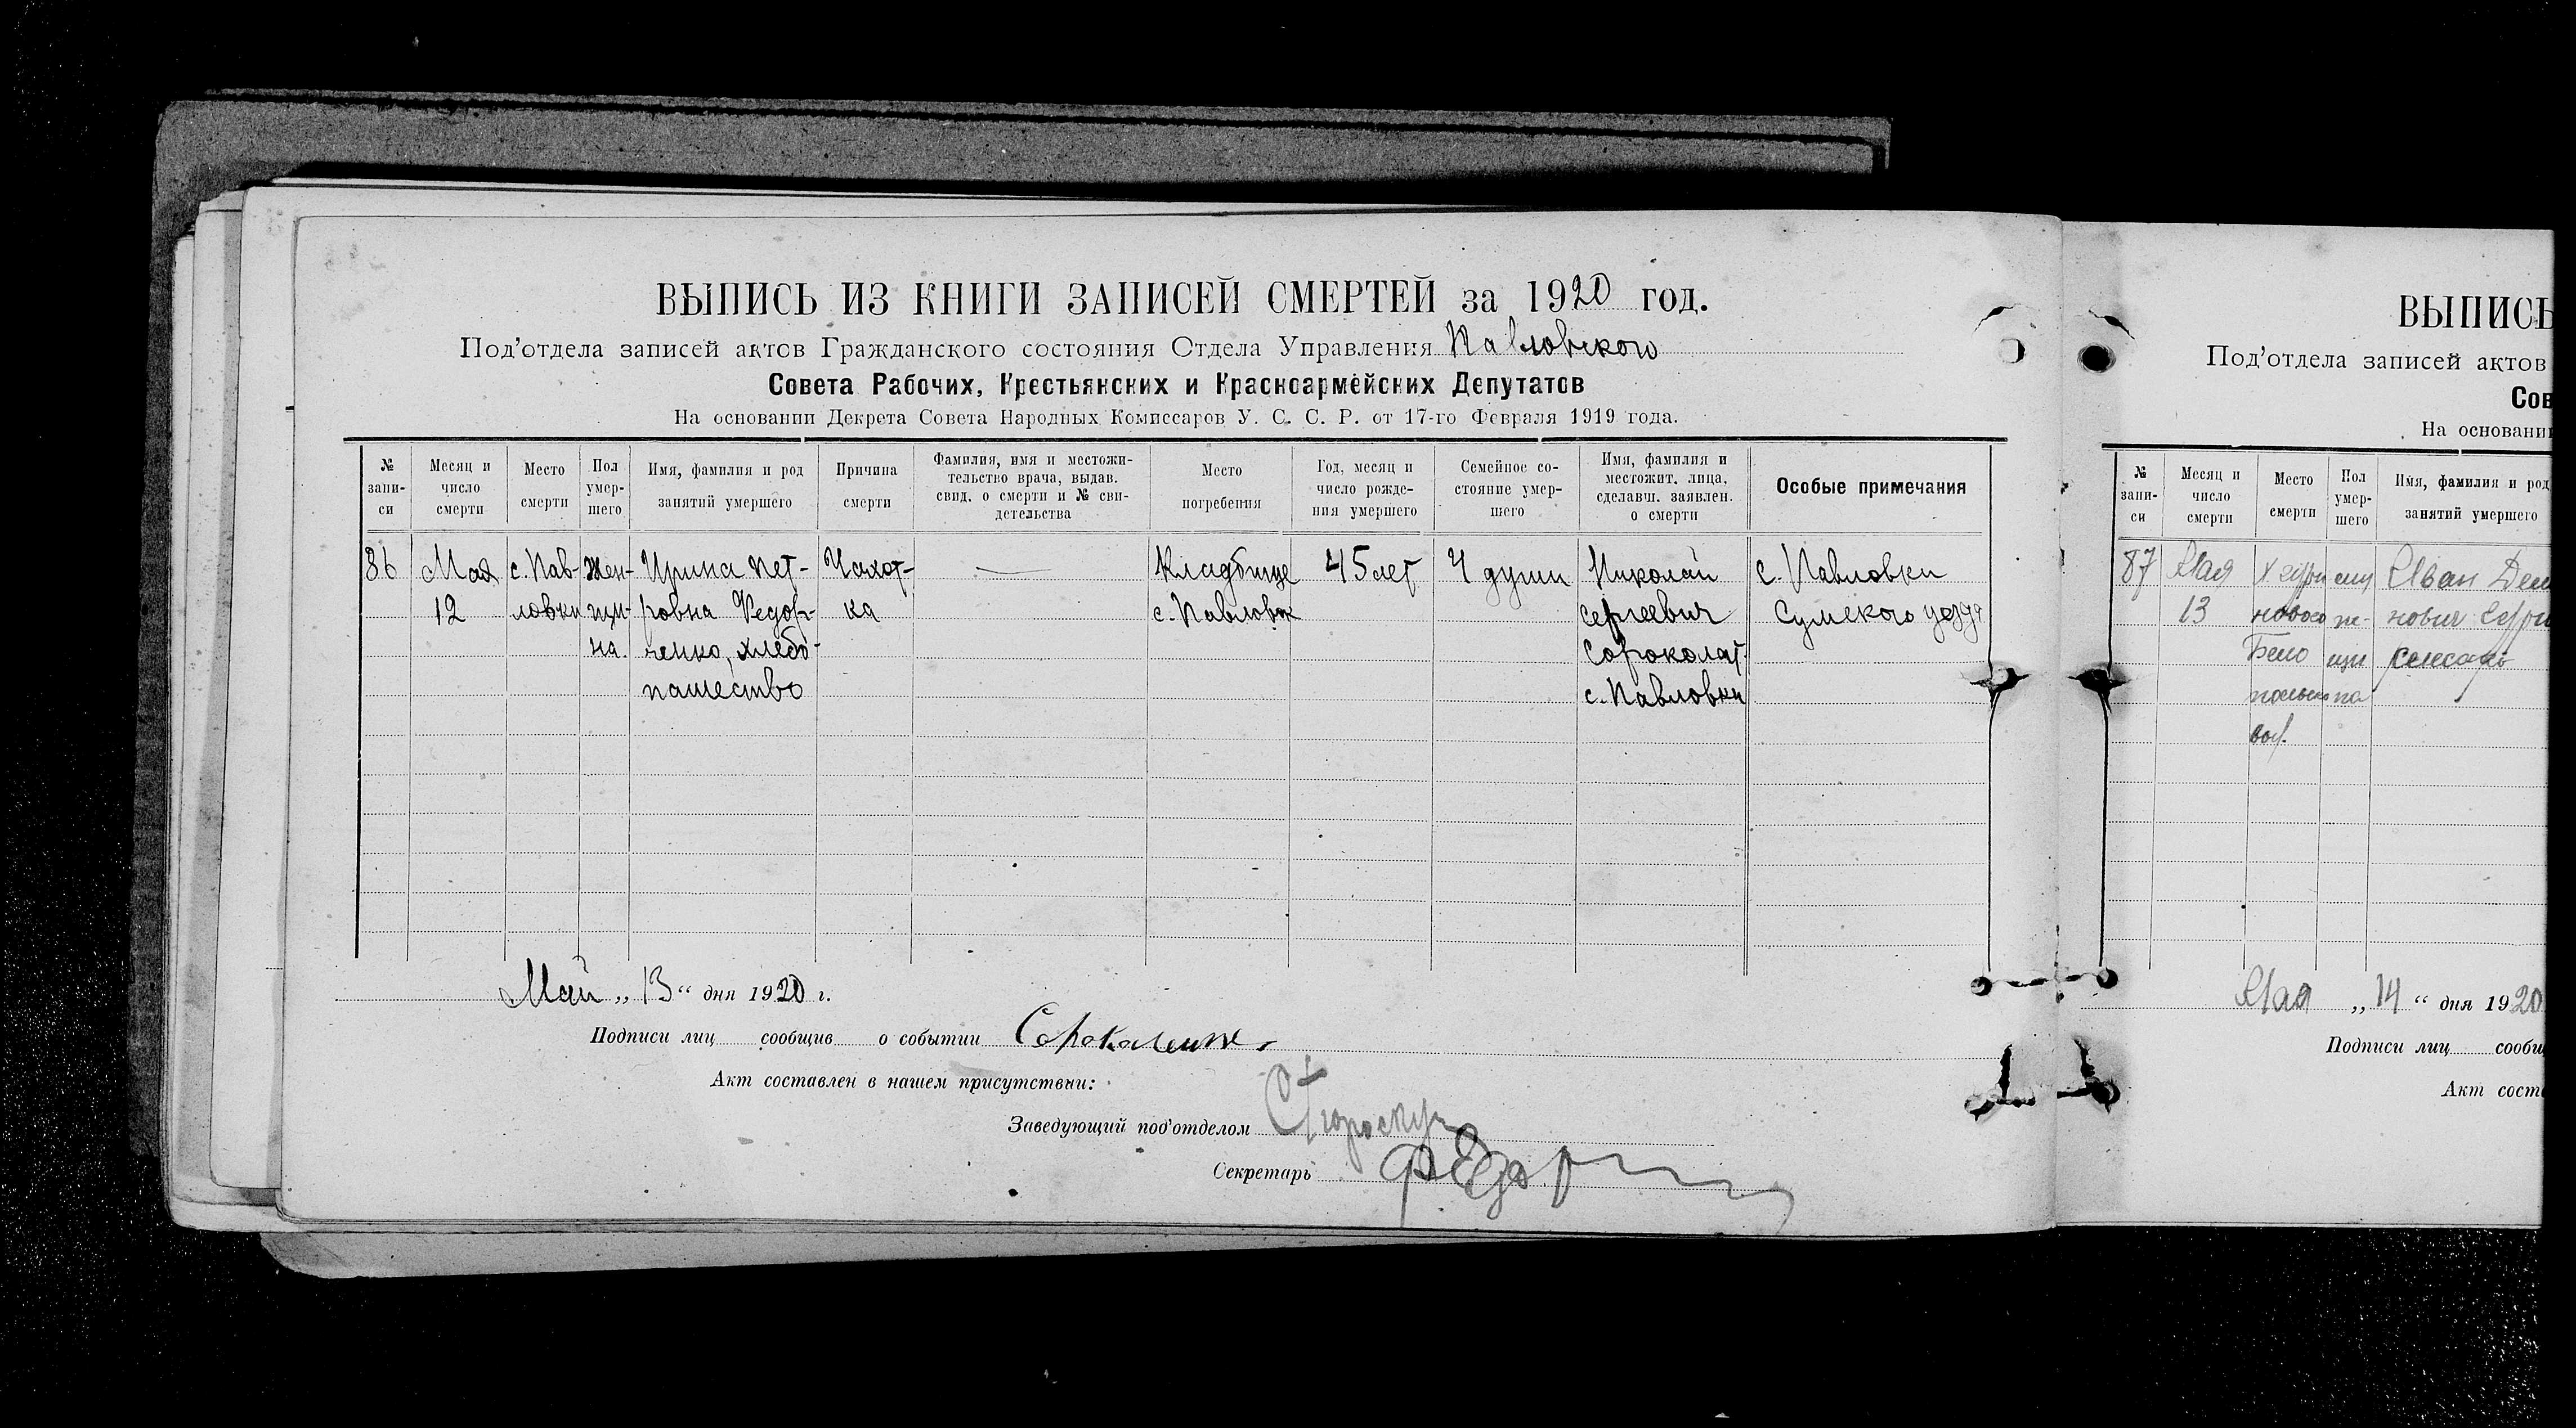 ВЫПИСЬ ИЗ КНИГИ ЗАПИСЕЙ СМЕРТЕЙ за 1920 год.
Под’отдела записей актов Гражданского состояния Отдела Управления Павловского
Совета Рабочих, Крестьянских и Красноармейских Депутатов
На основании Декрета Совета Народных Комиссаров У. С. С. Р. от 17-го Февраля 1919 года.
№ запи-си
Месяц и число смерти
Место смерти
Пол умер-шего
Имя, фамилия и род занятий умершего
Причина смерти
Фамилия, имя и местожи-тельство врача, выдав. свид. о смерти и № сви-детельства
Место погребения
Год, месяц и число рожде-ния умершего
Семейное со-стояние умер-шего
Имя, фамилия и местожит. лица, сделавш. заявлен. о смерти
Особые примечания
86 Мая с. Пав- Жен- Ирина Пет- Чахот- Кладбище 45 лет 4 души Николай с. Павловки
12 ловки щи- ровна Федор- ка с. Павловк Сергеевич Сумского уезда
на. ченко, хлебо- Сороколат
пашество с. Павловки
Май „ 13 “ дня 1920 г.
Подписи лиц сообщив о событии
Акт составлен в нашем присутствии:
Заведующий под’отделом
Секретарь
ВЫПИСЬ
Под’отдела записей актов
Сов
На основани
№ запи-си
Месяц и число смерти
Место смерти
Пол умер-шего
Имя, фамилия и род занятий умершего
87 Мая Иван
13 нович
Бело слесарь
Мая „ 14 “ дня 1920
Подписи лиц сообщ
Акт сост